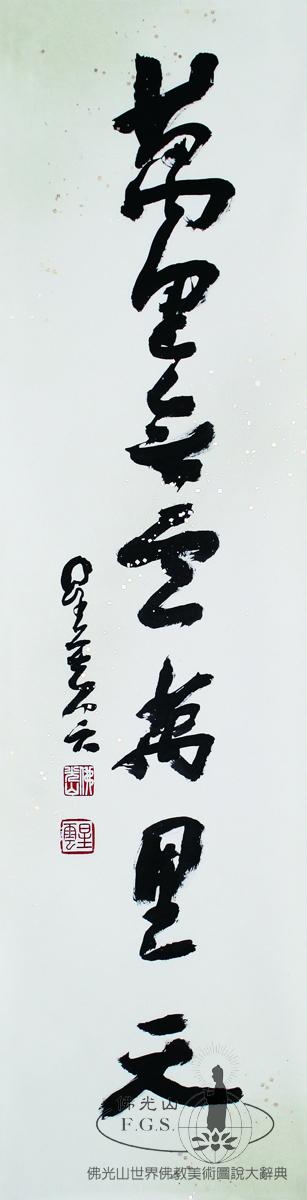 萬里無雲萬里天
星雲
佛光山
星雲
佛光山
F.G.S.
佛光山世界佛教美術圖說大辭典